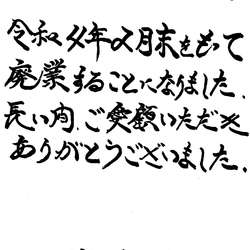 令和4年2月末をもって
廃業することになりました、
長い間、ご愛顧いただき
ありがとうございました、